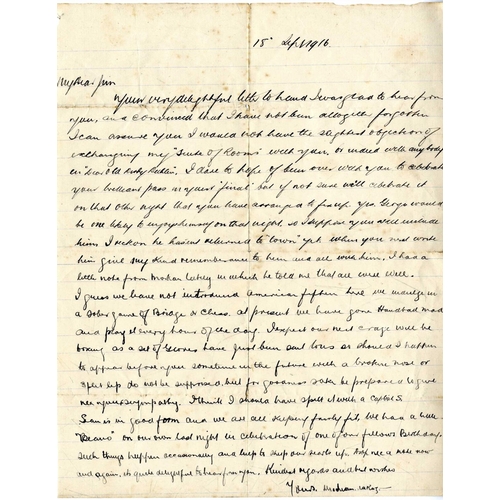 15 Sept 1916.
My Dear Jim
Your very delightful letter to hand I was glad to hear from
you, and convinced that I have not been altogether forgotten
I can assure you I would not have the slightest objection of
exchanging my "Suite of Rooms" with you, or indeed with anybody
in "Dear Old Dublin". I dare to hope of been over with you to celebrate
your brilliant pass in your "final" but if not sure will celebrate it
on that other night that you have arranged to yes George would
be one likely to enjoy himself on that night, so I suppose you will include
him, I reckon he hasn't returned to town yet when you next write
him give my kind remembrance to him and all with him, I had a
little note from in which he told me that all were well.
I guess we have not introduced american fifteen here we indulge in
a sober game of Bridge or Chess. at present we have gone Handball mad
and play it every hour of the day. I expect our next craze will be
boxing as a set of Gloves have just been sent to us so should I happen
to appear before you sometime in the future with a broken nose or
split up do not be supposed but for goodness sake be prepared to give
me your sympathy. I think I should have spelt it with a capital S
Sean is in good form and we are all keeping fairly fit. We had a little
"Beano" on our own last night in celebration of one of our fellows Birthday.
such things happen occasionally and help to keep our hearts up. Drop me a note now
and again, its quite delightful to hear from you. Kindest regards and best wishes
Yours.